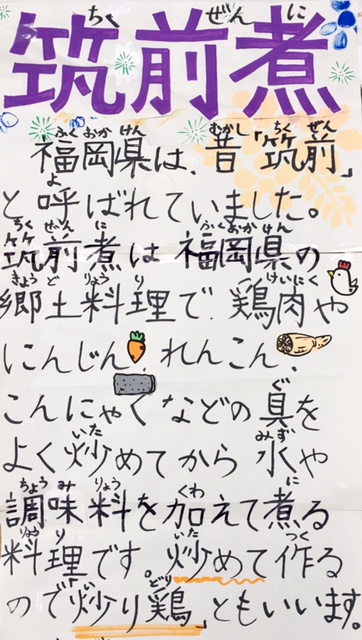 ちく ぜん に
筑前煮
ふく おか けん むかし ちく ぜん
福岡県は、昔「筑前」
よ
と呼ばれていました。
ちく ぜん に ふく おか けん
筑前煮は福岡県の
きょう ど りょう り けいにく
郷土料理で、鶏肉や
にんじん、れんこん、
ぐ
こんにゃくなどの具を
いた みず
よく炒めてから水や
ちょう み りょう くわ に
調味料を加えて煮る
りょう り いた つく
料理です。炒めて作る
い どり
ので「炒り鶏」ともいいます。